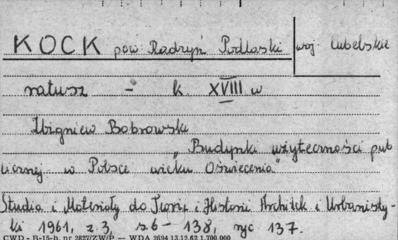 KOCK pow. Radzyń Podlaski woj. lubelskie
ratusz - k. XVIII w
Zbigniew Bobrowski
"Budynki użyteczności pub
licznej w Polsce wieku Oświecenia"
Studia i Materiały do Teorii i Historii Architek i Urbanisty-
ki 1961, z. 3, s. 6 - 138, ryc 137.
CWD - B-15-b, nr 2827/ZW/P — WDA 2694 13.12.62 1.700.000